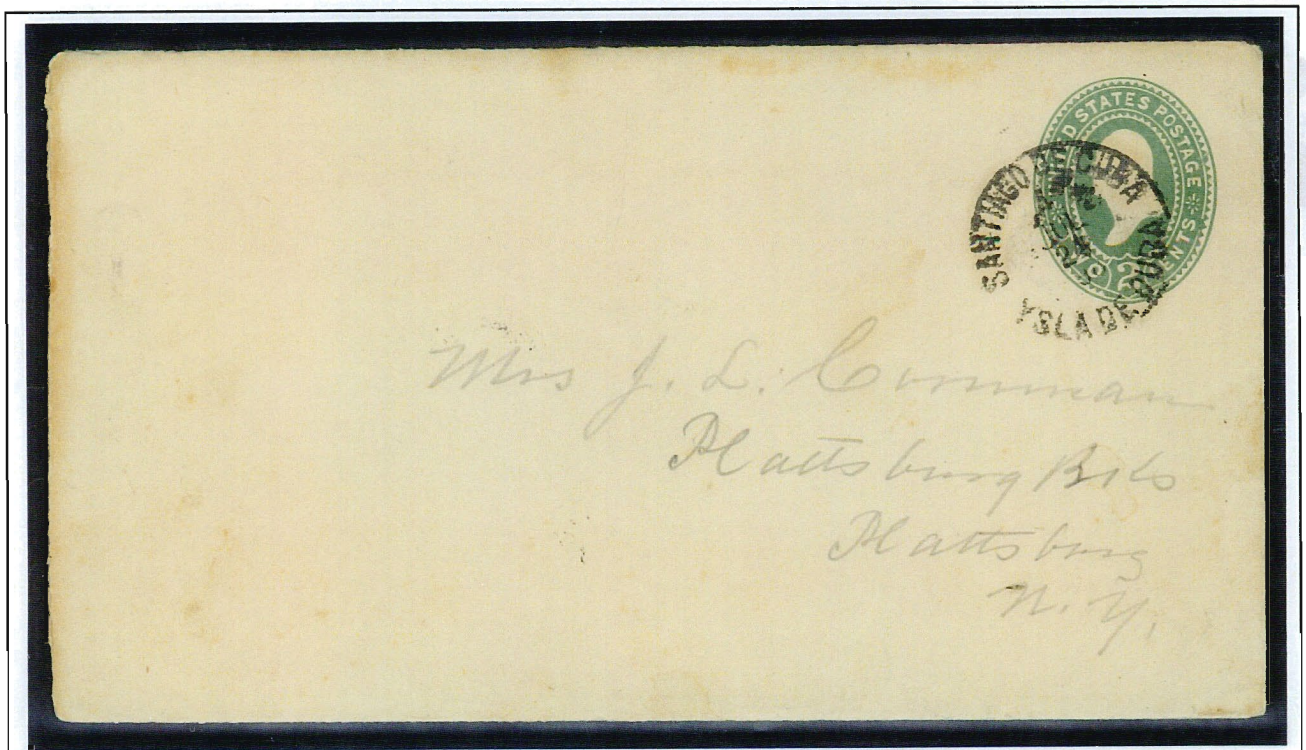 UNITED STATES POSTAGE
TWO 2 CENTS
SANTIAGO DE CUBA
YSLA DE CUBA
Mrs J. L.
Plattsburg Bks
Plattsburg
N. Y.